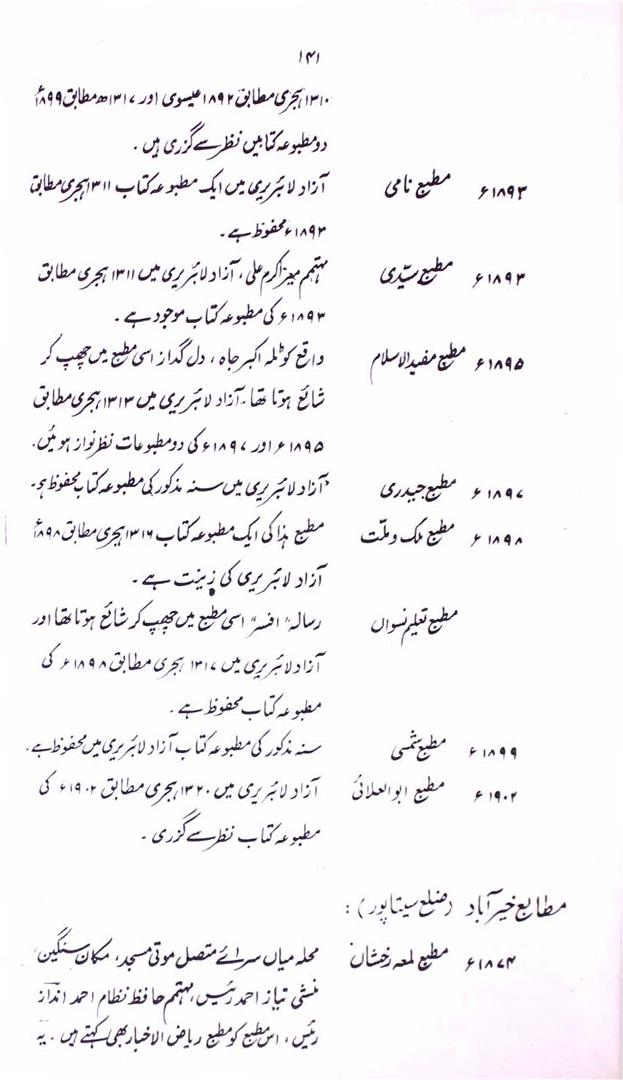 ۱۴۱
۱۳۱۰ ہجری مطابق ۱۸۹۲ عیسوی اور ۱۳۱۷ھ مطابق ۱۸۹۹ء
دو مطبوعہ کتابیں نظر سے گزری ہیں ۔
۱۸۹۳ء مطبع نامی آزاد لائبریری میں ایک مطبوعہ کتاب ۱۳۱۱ ہجری مطابق
۱۸۹۳ء محفوظ ہے ۔
۱۸۹۳ء مطبع سیّدی مہتمم میر اکرم علی، آزاد لائبریری میں ۱۳۱۱ ہجری مطابق
۱۸۹۳ء کی مطبوعہ کتاب موجود ہے ۔
۱۸۹۵ء مطبع مفید الاسلام واقع کوٹلہ اکبر جاہ ، دل گداز اسی مطبع میں چھپ کر
شائع ہوتا تھا ۔ آزاد لائبریری میں ۱۳۱۳ ہجری مطابق
۱۸۹۵ء اور ۱۸۹۷ء کی دو مطبوعات نظر نواز ہوئیں ۔
۱۸۹۷ء مطبع حیدری آزاد لائبریری میں سنہ مذکور کی مطبوعہ کتاب محفوظ ہے ۔
۱۸۹۸ء مطبع ملک و ملّت مطبع ہذا کی ایک مطبوعہ کتاب ۱۳۱۶ ہجری مطابق ۱۸۹۸ء
آزاد لائبریری کی زینت ہے ۔
مطبع تعلیم نسواں رسالہ "افسر" اسی مطبع میں چھپ کر شائع ہوتا تھا اور
آزاد لائبریری میں ۱۳۱۷ ہجری مطابق ۱۸۹۸ء کی
مطبوعہ کتاب محفوظ ہے ۔
۱۸۹۹ء مطبع شمسی سنہ مذکور کی مطبوعہ کتاب آزاد لائبریری میں محفوظ ہے ۔
۱۹۰۲ء مطبع ابوالعلائی آزاد لائبریری میں ۱۳۲۰ ہجری مطابق ۱۹۰۲ء کی
مطبوعہ کتاب نظر سے گزری ۔
مطابع خیر آباد (ضلع سیتاپور) :
۱۸۷۴ء مطبع لمعہ رخشاں محلہ میاں سرائے متصل موتی مسجد، مکان سنگین
منشی نیاز احمد رئیس، مہتمم حافظ نظام احمد انداز
رئیس، اس مطبع کو مطبع ریاض الاخبار بھی کہتے ہیں ۔ یہ